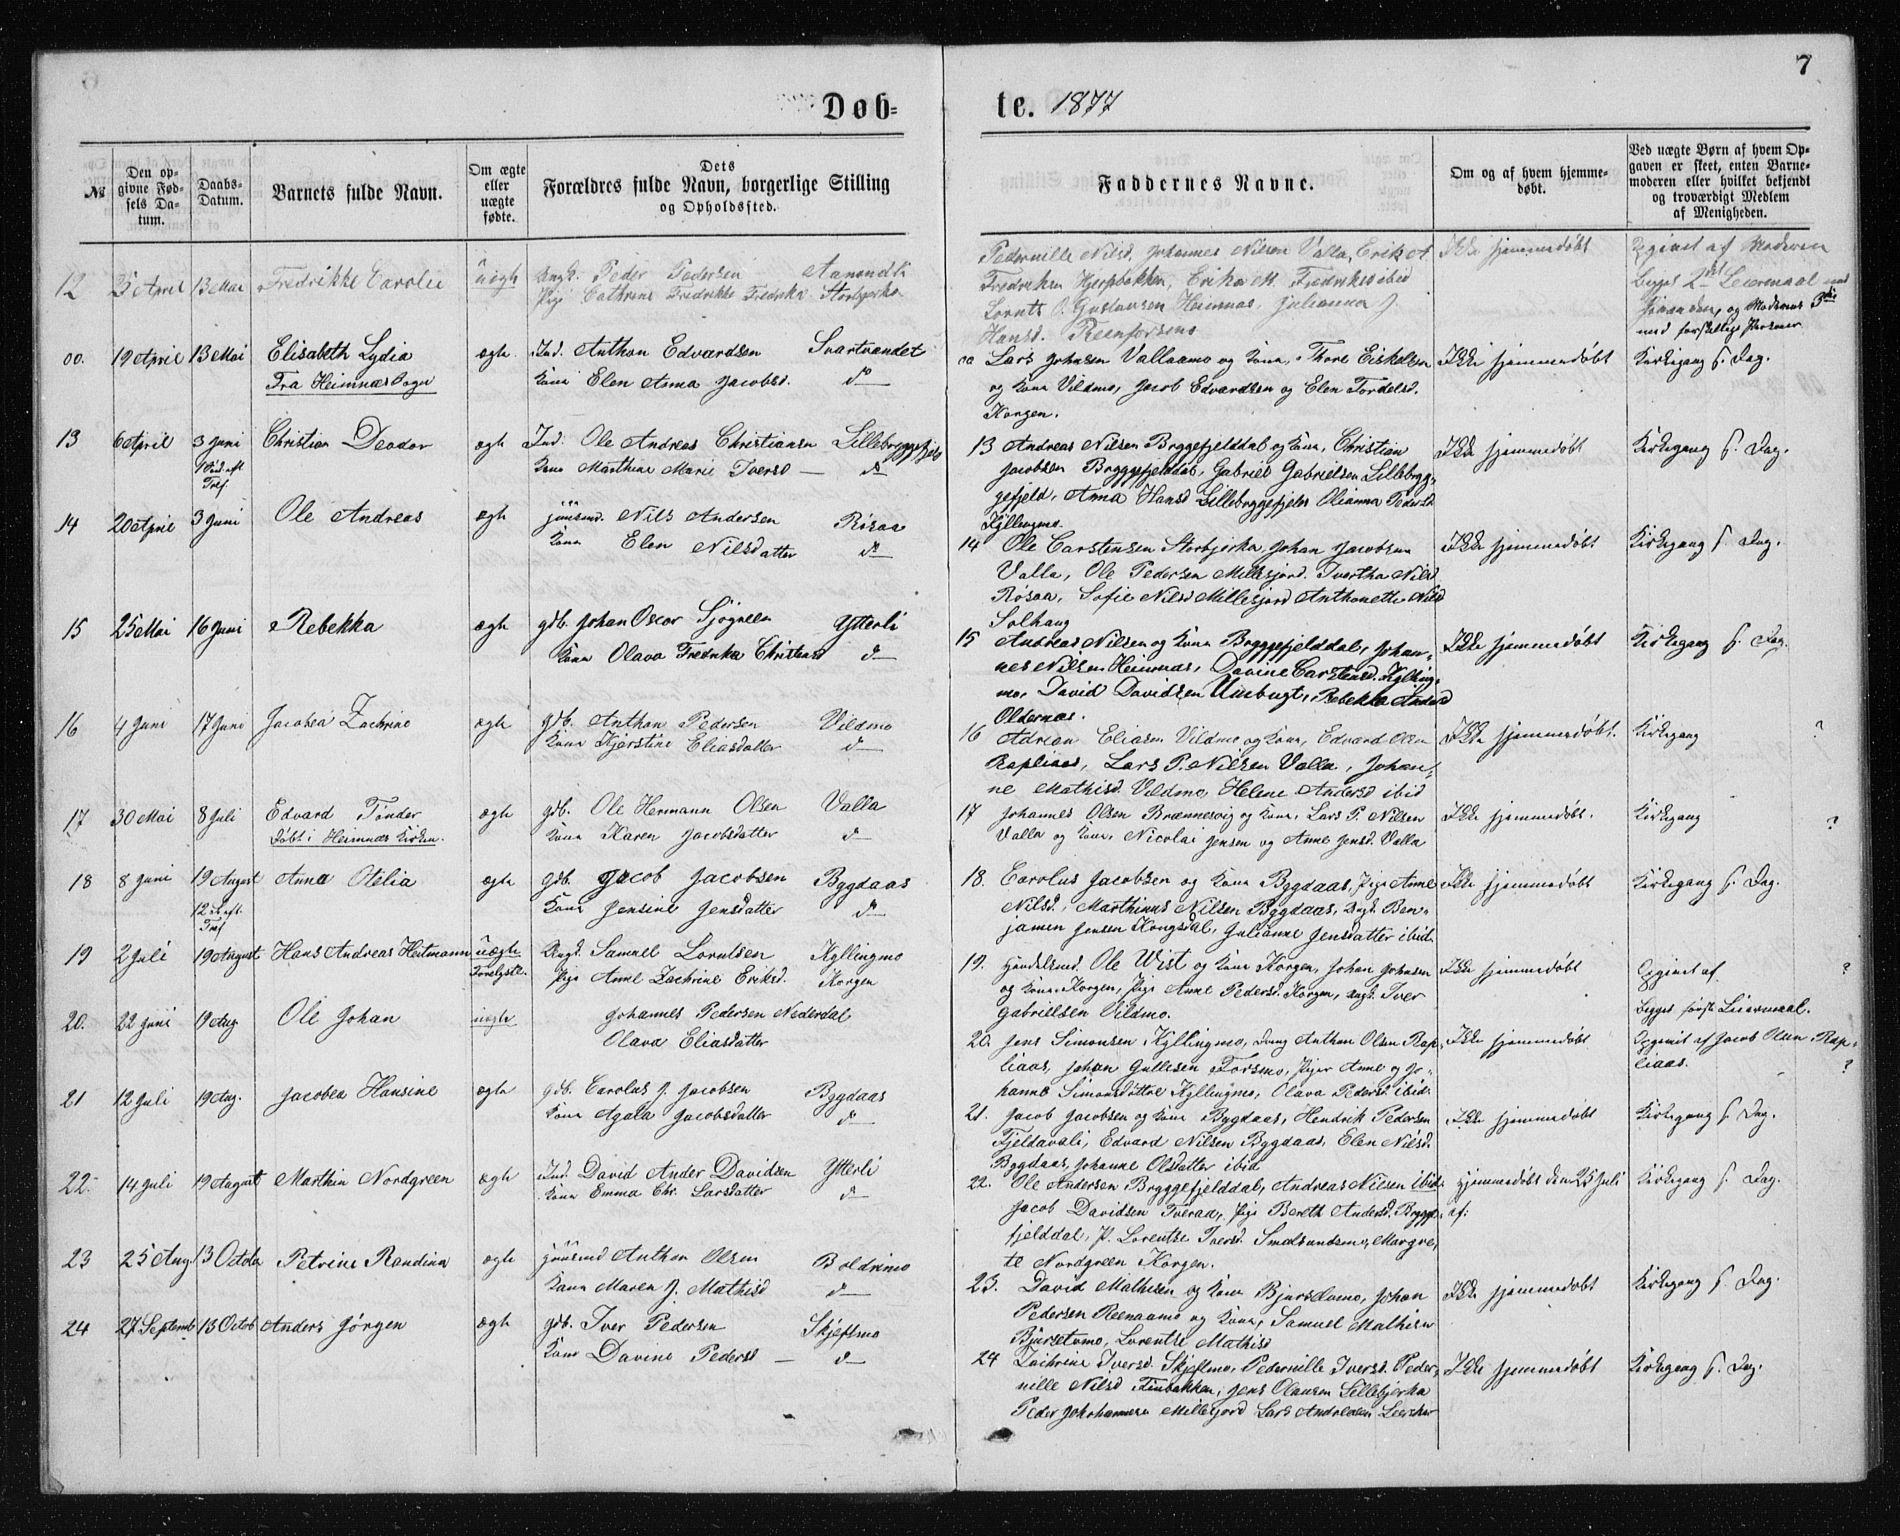 7
Døb-
te. 1877
№
Den op-
givne Fød-
sels Da-
tum.
Daabs-
Datum.
Barnets fulde Navn.
Om ægte
eller
uægte
fødte.
Dets
Forældres fulde Navn, borgerlige Stilling
og Opholdssted.
Faddernes Navne.
Om og af hvem hjemme-
døbt.
Ved uægte Børn af hvem Op-
gaven er skeet, enten Barne-
moderen eller hvilket bekjendt
og troværdigt Medlem
af Menigheden.
12 25 April 13 Mai Fredrikke Caroli uægte Ungk. Peder Pedersen
Pige Cathrine Fredrikke Fredrikd Storbjerka
Pedernille Nilsd, Johannes Nilsen Valla, Erik A
Fredriksen Hjerpbakken, Erika M. Fredriksd ibid
Lornts O. Gustavsen Heimnes, Julianna J.
Hansd. Reenforsmo
Ikke hjemmedøbt
Opgivet af Moderen
Begges 2det Leiermaal
og Moderens 3die
med forskellige Personer
00. 19 April 13 Mai Elisabeth Lydia
Fra Heimnæs Sogn
ægte Ind. Anthon Edvardsen Svartvandet
Kone Elen Anna Jacobsd. do
00 Lars Johnsen Vallaamo og Kone, Thore Eiskelsen
og Kone Vildmo, Jacob Edvardsen og Elen Tordelsd.
Korgen.
Ikke hjemmedøbt Kirkegang s. Dag.
13 6 April 3 Juni
Christian Deodor ægte Ind. Ole Andreas Christiansen Lillebryggefjeld
Kone Marthine Marie Iversd — do
13 Andreas Nilsen Bryggefjelddal og Kone, Christian
Jacobsen Bryggefjelddal, Gabriel Gabrielsen Lillebryg-
gefjeld, Anna Hansd Lillebryggefjeld Olianna Pedersd
Kyllingmo.
Ikke hjemmedøbt Kirkegang s. Dag.
14 20 April 3 Juni Ole Andreas ægte Juusmd. Nils Andersen Røsaa
Kone Elen Nilsdatter do
14 Ole Carstensen Storbjerka, Johan Jacobsen
Valla, Ole Pedersen Millesjord. Ivertha Nilsd
Røsaa, Sofie Nilsd Millesjord Anthonette Nilsd
Solhaug
Ikke hjemmedøbt Kirkegang s. Dag.
15 25 Mai 16 Juni Rebekka ægte gdb. Johan Oscar Sjøgreen Ytterli
Kone Olava Fredrikke Christensd do
15 Andreas Nilsen og Kone Bryggefjelddal, Johan-
nes Nilsen Heimnes, Davine Carstensd. Kylling-
mo, David Davidsen Umbugt, Rebekka Andersd
Oldernæs.
Ikke hjemmedøbt Kirkegang s. Dag.
16 4 Juni 17 Juni Jacobea Zachrine ægte gdb. Anthon Pedersen Vildmo
Kone Kjerstine Eliasdatter do
16 Adrian Eliasen Vildmo og Kone, Edvard Olsen
Rapliaas, Lars P. Nilsen Valla, Johan-
ne Mathisd Vildmo, Helene Andersd ibid
Ikke hjemmedøbt. Kirkegang ?
17 30 Mai 8 Juli Edvard Tinder
Døbt i Heimnæs Kirken.
ægte gdb. Ole Hermann Olsen Valla
Kone Karen Jacobsdatter do
17 Johannes Olsen Brænnesvig og Kone, Lars P. Nilsen
Valla og Kone, Nicolai Jensen og Anne Jensd. Valla
Ikke hjemmedøbt. Kirkegang ?
18 8 Juni 19 August
Anna Otelia ægte gdb. Jacob Jacobsen Bygdaas
Kone Jensine Jensdatter do
18. Carolus Jacobsen og Kone Bygdaas, Pige Anne
Nilsd, Marthinus Nilsen Bygdaas, Ungk. Ben-
jamin Jensen Kongsdal, Julianne Jensdatter ibid
Ikke hjemmedøbt Kirkegang s. Dag.
19 2 Juli 19 August Hans Andreas Heitmann uægte
Ungk. Samuel Lorntsen Kyllingmo
Pige Anne Zachrine Eriksd. Korgen
19. Handelsmd. Ole Wist og Kone Korgen, Johan Johnsen
og Kone Korgen, Pige Anne Pedersd. Korgen, Ungk. Iver
Gabrielsen Vildmo.
Ikke hjemmedøbt Opgivet af ?
Begges første Leiermaal.
20. 22 Juni 19 Aug. Ole Johan uægte Johannes Pedersen Nederdal
Olava Eliasdatter
20. Jens Simonsen Kyllingmo, Anthon Olsen Rap-
liaas, Johan Gullesen Forsmo, Piger Anne og Jo-
hanne Simonsdøttre Kyllingmo, Olava Pedersd ibid.
Ikke hjemmedøbt Opgivet af Jacob Olsen Rap-
liaas. ?
21 12 Juli 19 Aug. Jacobea Hansine ægte gdb. Carolus J. Jacobsen Bygdaas
Kone Agata Jacobsdatter do
21. Jacob Jacobsen og Kone Bygdaas, Hendrik Pedersen
Fjeldavali, Edvard Nilsen Bygdaas, Elen Nilsd.
Bygdaas, Johanne Olsdatter ibid
Ikke hjemmedøbt Kirkegang s. Dag.
22. 14 Juli 19 August Marthin Nordgreen ægte Ind. David Ander Davidsen Ytterli
Kone Emma Chr. Larsdatter do
22. Ole Andersen Bryggefjelddal, Andreas Nilsen ibid
Jacob Davidsen Tveraa, Pige Bereth Andersd. Brygge-
fjelddal, P. Lorentse Iversd. Smalsundmo, Margre-
te Nordgreen Korgen.
Hjemmedøbt den 25 Juli
af:
Kirkegang s. Dag.
23 25 Aug 13 Octob Petrine Randina ægte Huusmd Anthon Olsen Boldrimo
Kone Maren J. Mathisd do
23. David Mathisen og Kone Bjursetmo, Johan
Pedersen Reenaamo og Kone, Samuel Mathisen
Bjursetmo, Lorentse Mathisd
Ikke hjemmedøbt Kirkegang s. Dag.
24 27 Septemb 13 Octob Anders Jørgen ægte gdb. Iver Pedersen Skjeftmo
Kone Davine Pedersd — do
24 Zachrine Iversd. Skjeftmo, Pedernille Iversd. Peder-
nille Nilsd Finbakken, Jens Olausen Lillebjerka
Peder Johannesen Millesjord Lars Andreasen
Ikke hjemmedøbt Kirkegang s. Dag.